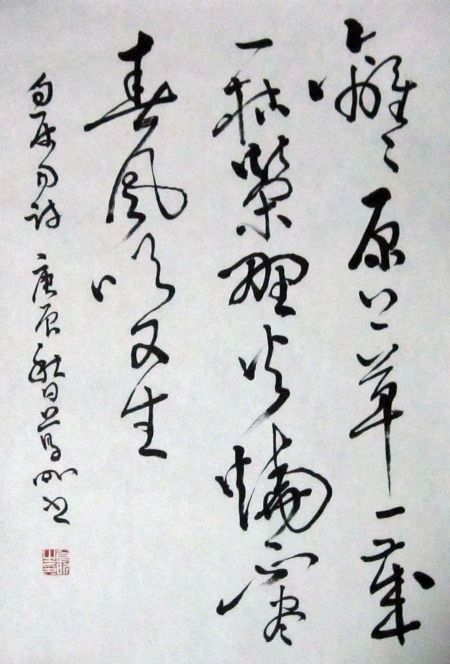 離〻原上草一歲
一枯榮野火燒不盡
春風吹又生
白居易詩 庚辰秋日 書